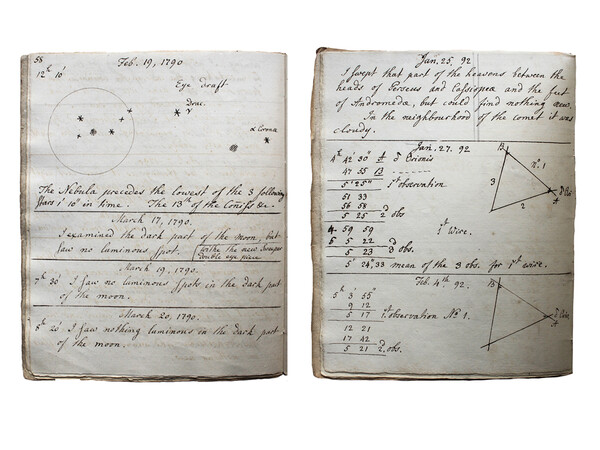 58
Feb. 19, 1790
12h 10'
Eye draft
Drac.
γ
α Coronæ
The Nebula precedes the lowest of the 3 following
stars 1' 10" in time. The 13th of the
March 17, 1790.
I examined the dark part of the moon, but
saw no luminous spot. with the new Sweeper
double eye piece
March 19, 1790.
7h 30' I saw no luminous spots in the dark part
of the moon.
March 20, 1790.
8h 20' I saw nothing luminous in the dark part
of the moon.
Jan. 25, 92
I swept that part of the heavens between the
heads of Perseus and Cassiopea and the feet
of Andromeda, but could find nothing new.
In the neighbourhood of the comet it was
cloudy.
Jan. 27. 92
4h 42' 30" ± δ Orionis
47 55 13
5' 25" 1st observation
51 33
56 58
5 25 2d obs
4. 59 59 1st Wire.
5 5 22
5 23
5' 24",33 mean of the 3 obs. for 1st wire.
B
no. 1
3
2
Feb. 4th 92.
5h 3' 55"
9 12
5 17 1st observation No 1.
12 21
17 42
5 21 2d obs.
B